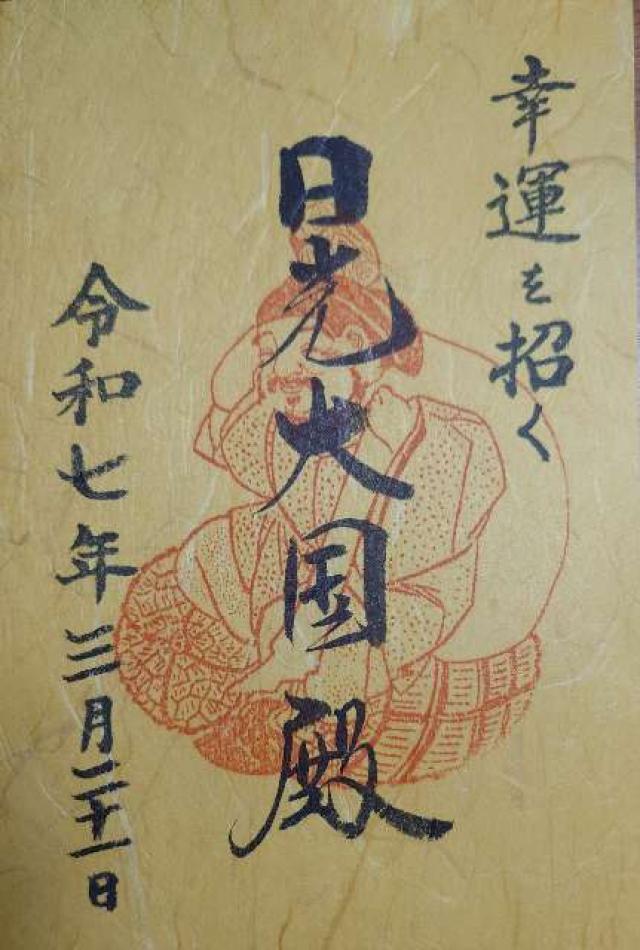 幸運を招く
日光大国殿
令和七年三月二十一日